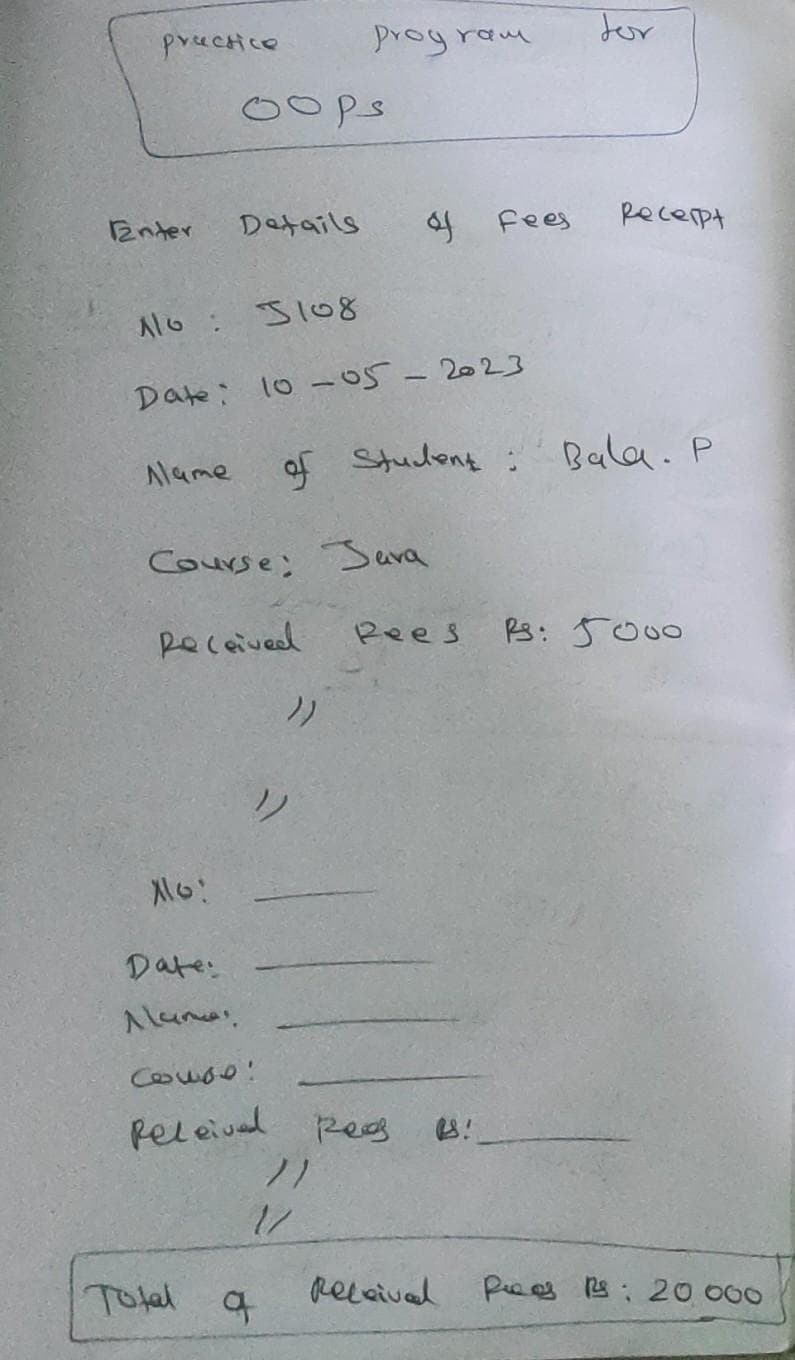 practice program for
OOPs
Enter Details of Fees Receipt
No : J108
Date: 10-05-2023
Name of Student : Bala. P
Course: Java
Received Fees Rs: 5000
"
"
No:
Date:
Name:
Course:
Received Fees Rs:
"
"
Total of Received Fees Rs: 20 000